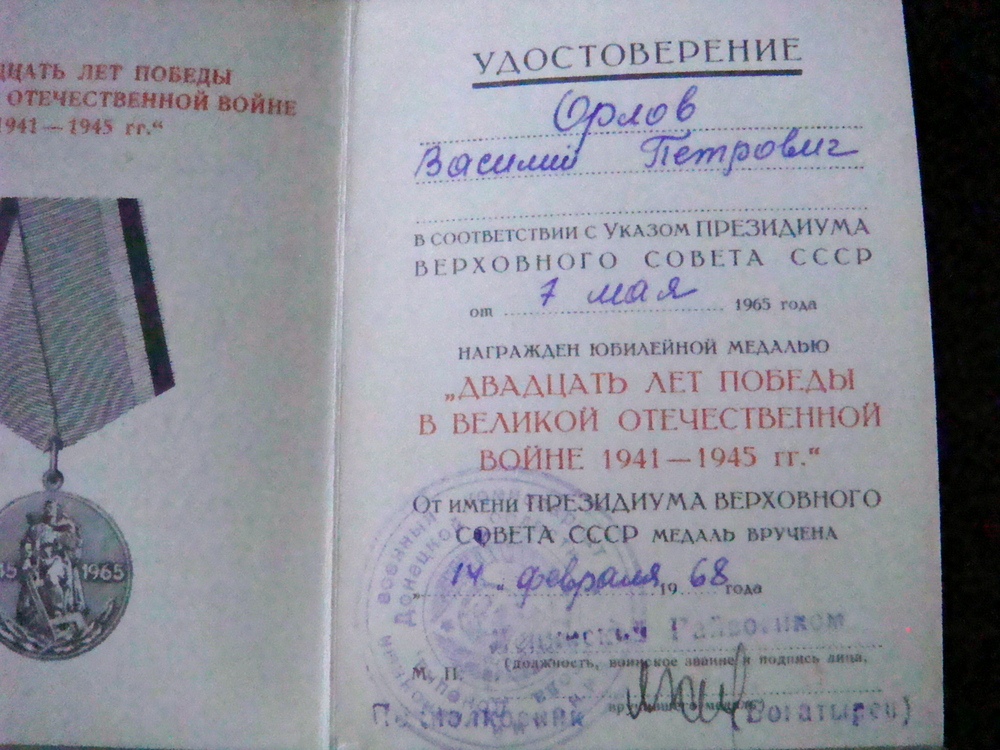 ДЦАТЬ ЛЕТ ПОБЕДЫ
ОТЕЧЕСТВЕННОЙ ВОЙНЕ
1941 — 1945 гг.“
45 1965
УДОСТОВЕРЕНИЕ
Орлов
Василий Петрович
В СООТВЕТСТВИИ С УКАЗОМ ПРЕЗИДИУМА
ВЕРХОВНОГО СОВЕТА СССР
от 7 мая 1965 года
НАГРАЖДЕН ЮБИЛЕЙНОЙ МЕДАЛЬЮ
„ДВАДЦАТЬ ЛЕТ ПОБЕДЫ
В ВЕЛИКОЙ ОТЕЧЕСТВЕННОЙ
ВОЙНЕ 1941 — 1945 гг.“
ОТ ИМЕНИ ПРЕЗИДИУМА ВЕРХОВНОГО
СОВЕТА СССР МЕДАЛЬ ВРУЧЕНА
„14“ февраля 1968 года
Райвоенком
(должность, воинское звание и подпись лица,
М. П.
вручившего медаль)
Подполковник (Богатырец)
военный
Донецкой